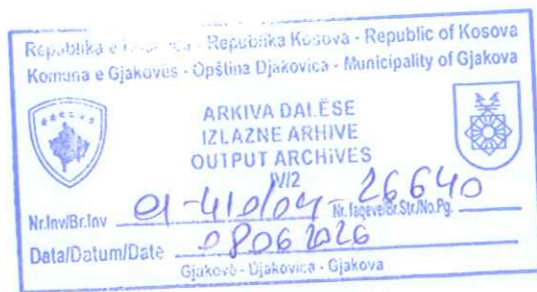 Republika e - Republika Kosova - Republic of Kosova
Komuna e Gjakovës - Opština Djakovica - Municipality of Gjakova
ARKIVA DALËSE
IZLAZNE ARHIVE
OUTPUT ARCHIVES
IV/2
Nr.Inv/Br.Inv 01-410/04-26640 Nr.faqeve/Br.Str./No.Pg.
Data/Datum/Date 08062026
Gjakovë - Djakovica - Gjakova